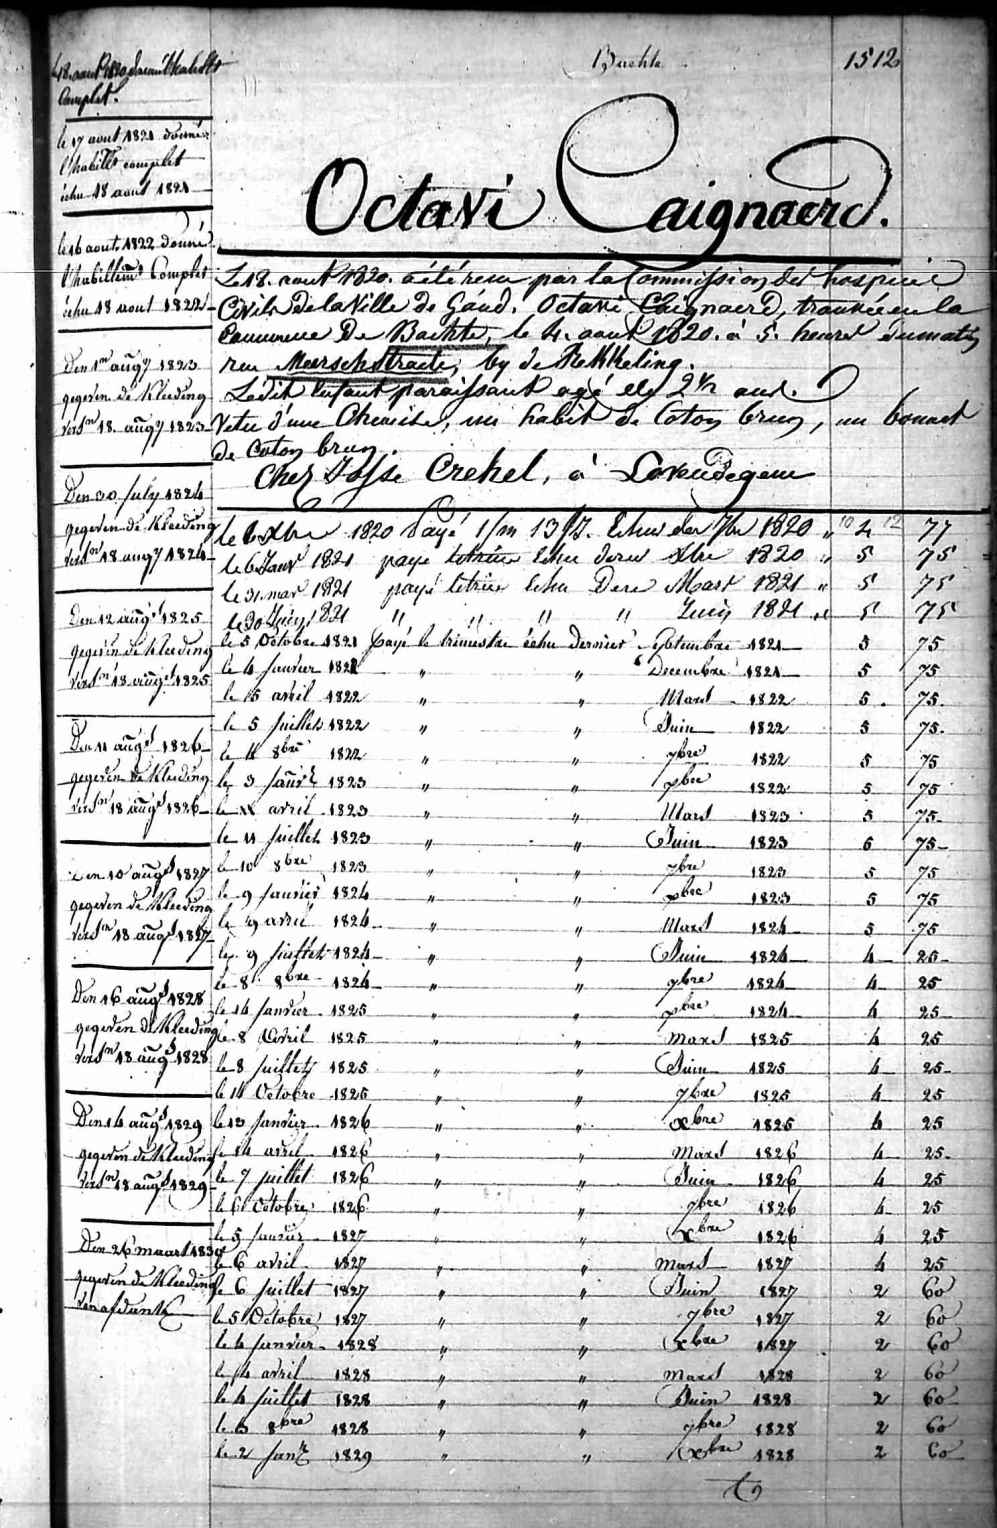 Bachte 1512
Octavi Caignaerd.
Le 18. aout 1820. a été reçu par la Commission des hospices
Civils de la Ville de Gand. Octavi Caignaerd, trouvée en la
Commune De Bachte, le 4. aout 1820. à 5. heures du matin
rue Meerschstraete, by de
Ledit Enfant paraissant agé de 2 1/2 ans.
Vetu d'une Chemise, un habit de Coton brun, un bonnet
de coton brun.
Chez Josse Crekel, à Lovendegem
le 18. aout 1820
Complet.
le 17 aout 1821 donné
l'habillt complet
échu 18 aout 1821
le 16 aout 1822 donné
l'habillemt Complet
échu 18 aout 1822
Den 1n augy 1823
gegeven de Kleeding
versn 18. augy 1823
Den 30 July 1824
gegeven de Kleeding
versn 18 augy 1824
Den 12 augst 1825
gegeven de Kleeding
versn 18 augst 1825
Den 11 augst 1826
gegeven de Kleeding
versn 18 augst 1826
Den 10 augst 1827
gegeven de Kleeding
versn 18 augst 1827
Den 16 augst 1828
gegeven de Kleeding
versn 18 augst 1828
Den 14 augst 1829
gegeven de Kleeding
versn 18 augst 1829
Den 26 maart 1830
gegeven de Kleeding
le 6 Xbre 1820 Payé 1/m 13/J. Echu der 7bre 1820 " 4 77
le 6 Janv 1821 payé trimre Echu dern Xbre 1820 " 5 75
le 31 mar 1821 payé trimre Echu Dern Mars 1821 " 5 75
le 30 Juin 1821 " " " Juin 1821 " 5 75
le 5 Octobre 1821 Payé le trimestre échu dernier Septembre 1821 5 75
le 4 Janvier 1822 " " Decembre 1821 5 75
le 15 avril 1822 " " Mars 1822 5 75
le 5 Juillet 1822 " " Juin 1822 5 75
le 11 8bre 1822 " " 7bre 1822 5 75
le 3 Janvr 1823 " " xbre 1822 5 75
le 11 avril 1823 " " Mars 1823 5 75
le 11 Juillet 1823 " " Juin 1823 5 75
le 10 8bre 1823 " " 7bre 1823 5 75
le 9 Janvier 1824 " " xbre 1823 5 75
le 9 avril 1824 " " Mars 1824 5 75
le 9 Juillet 1824 " " Juin 1824 4 25
le 8 8bre 1824 " " 7bre 1824 4 25
le 14 Janvier 1825 " " xbre 1824 4 25
le 8 Avril 1825 " " Mars 1825 4 25
le 8 Juillet 1825 " " Juin 1825 4 25
le 11 Octobre 1825 " " 7bre 1825 4 25
le 13 Janvier 1826 " " xbre 1825 4 25
le 14 avril 1826 " " Mars 1826 4 25
le 7 Juillet 1826 " " Juin 1826 4 25
le 6 Octobre 1826 " " 7bre 1826 4 25
le 5 Janvier 1827 " " Xbre 1826 4 25
le 6 avril 1827 " " Mars 1827 4 25
le 6 Juillet 1827 " " Juin 1827 2 60
le 5 Octobre 1827 " " 7bre 1827 2 60
le 4 Janvier 1828 " " Xbre 1827 2 60
le 14 avril 1828 " " Mars 1828 2 60
le 4 Juillet 1828 " " Juin 1828 2 60
le 3 8bre 1828 " " 7bre 1828 2 60
le 2 Janr 1829 " " Xbre 1828 2 60